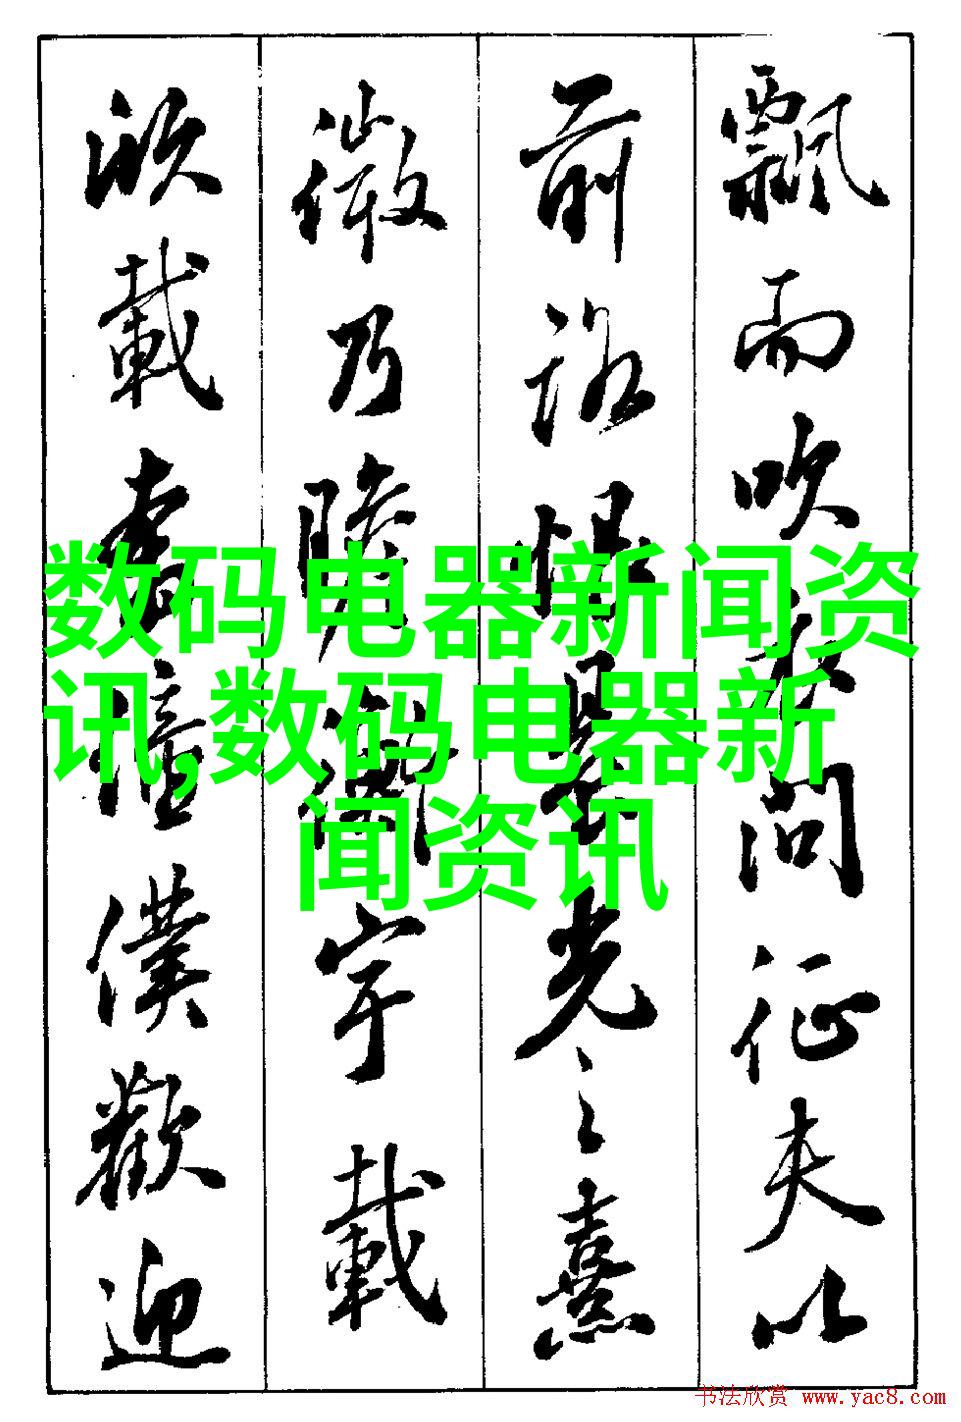 飄而吹衣問征夫以
前路恨晨光之熹
微乃瞻衡宇載
欣載奔僮僕歡迎
数码电器新闻资
讯,数码电器新
闻资讯
书法欣赏 www.yac8.com